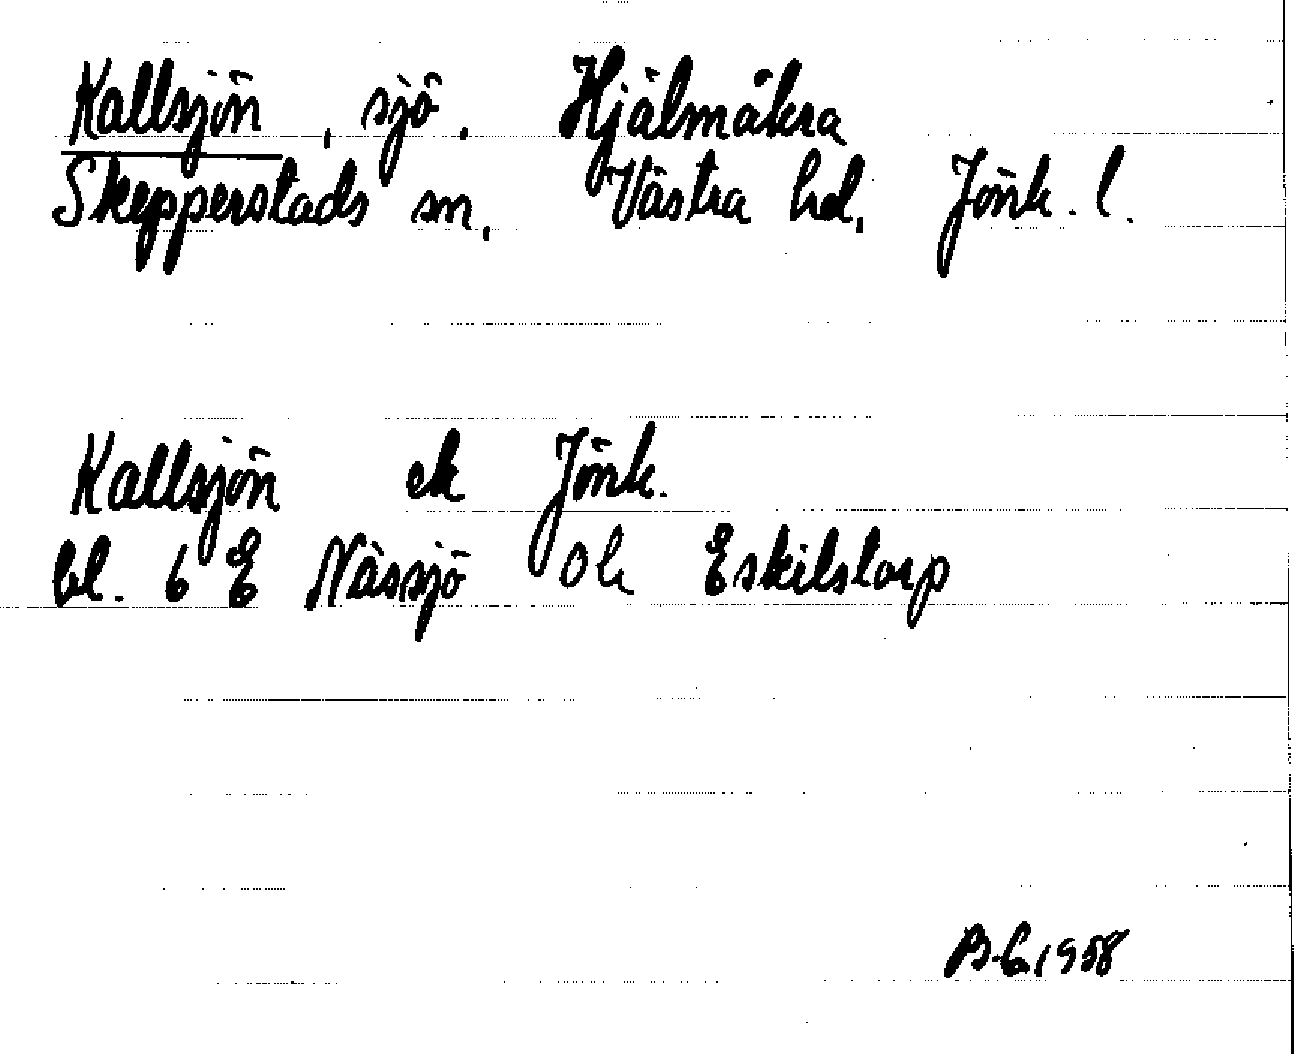 Kallsjön, sjö. Hjälmåkra
Skepperstads sn, Västra hd, Jönk. l.
Kallsjön ek Jönk.
bl. 6 E Nässjö 0 h Eskilstorp
1958